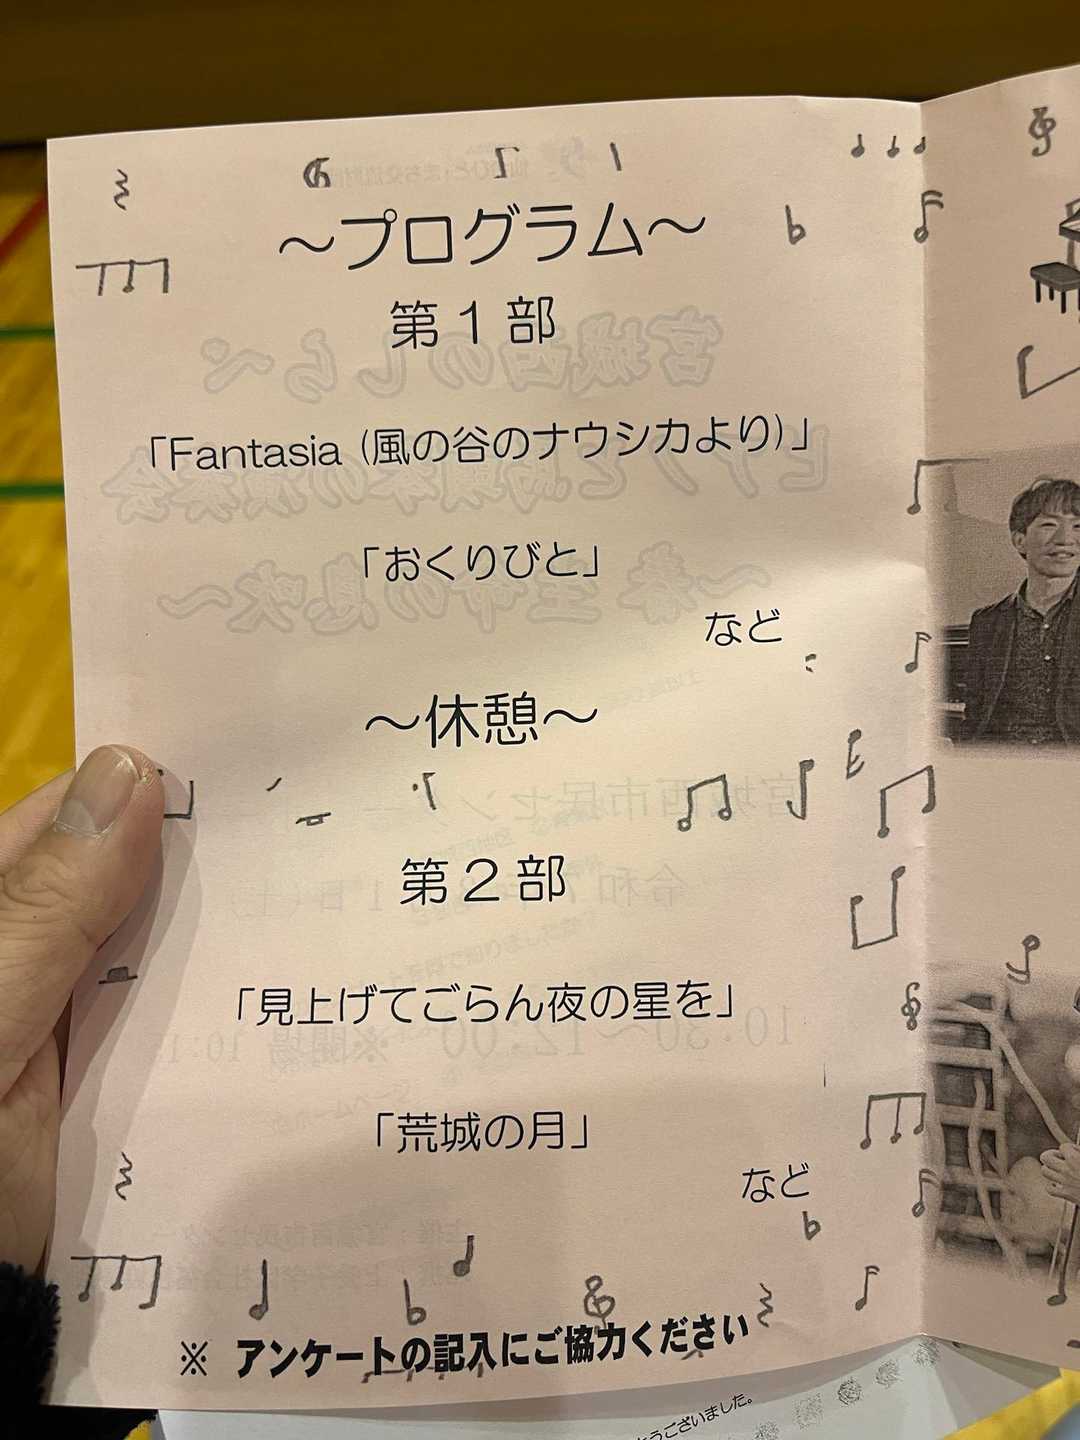 ～プログラム～
第1部
「Fantasia (風の谷のナウシカより)」
「おくりびと」
など
～休憩～
第2部
「見上げてごらん夜の星を」
「荒城の月」
など
※ アンケートの記入にご協力ください
うございました。